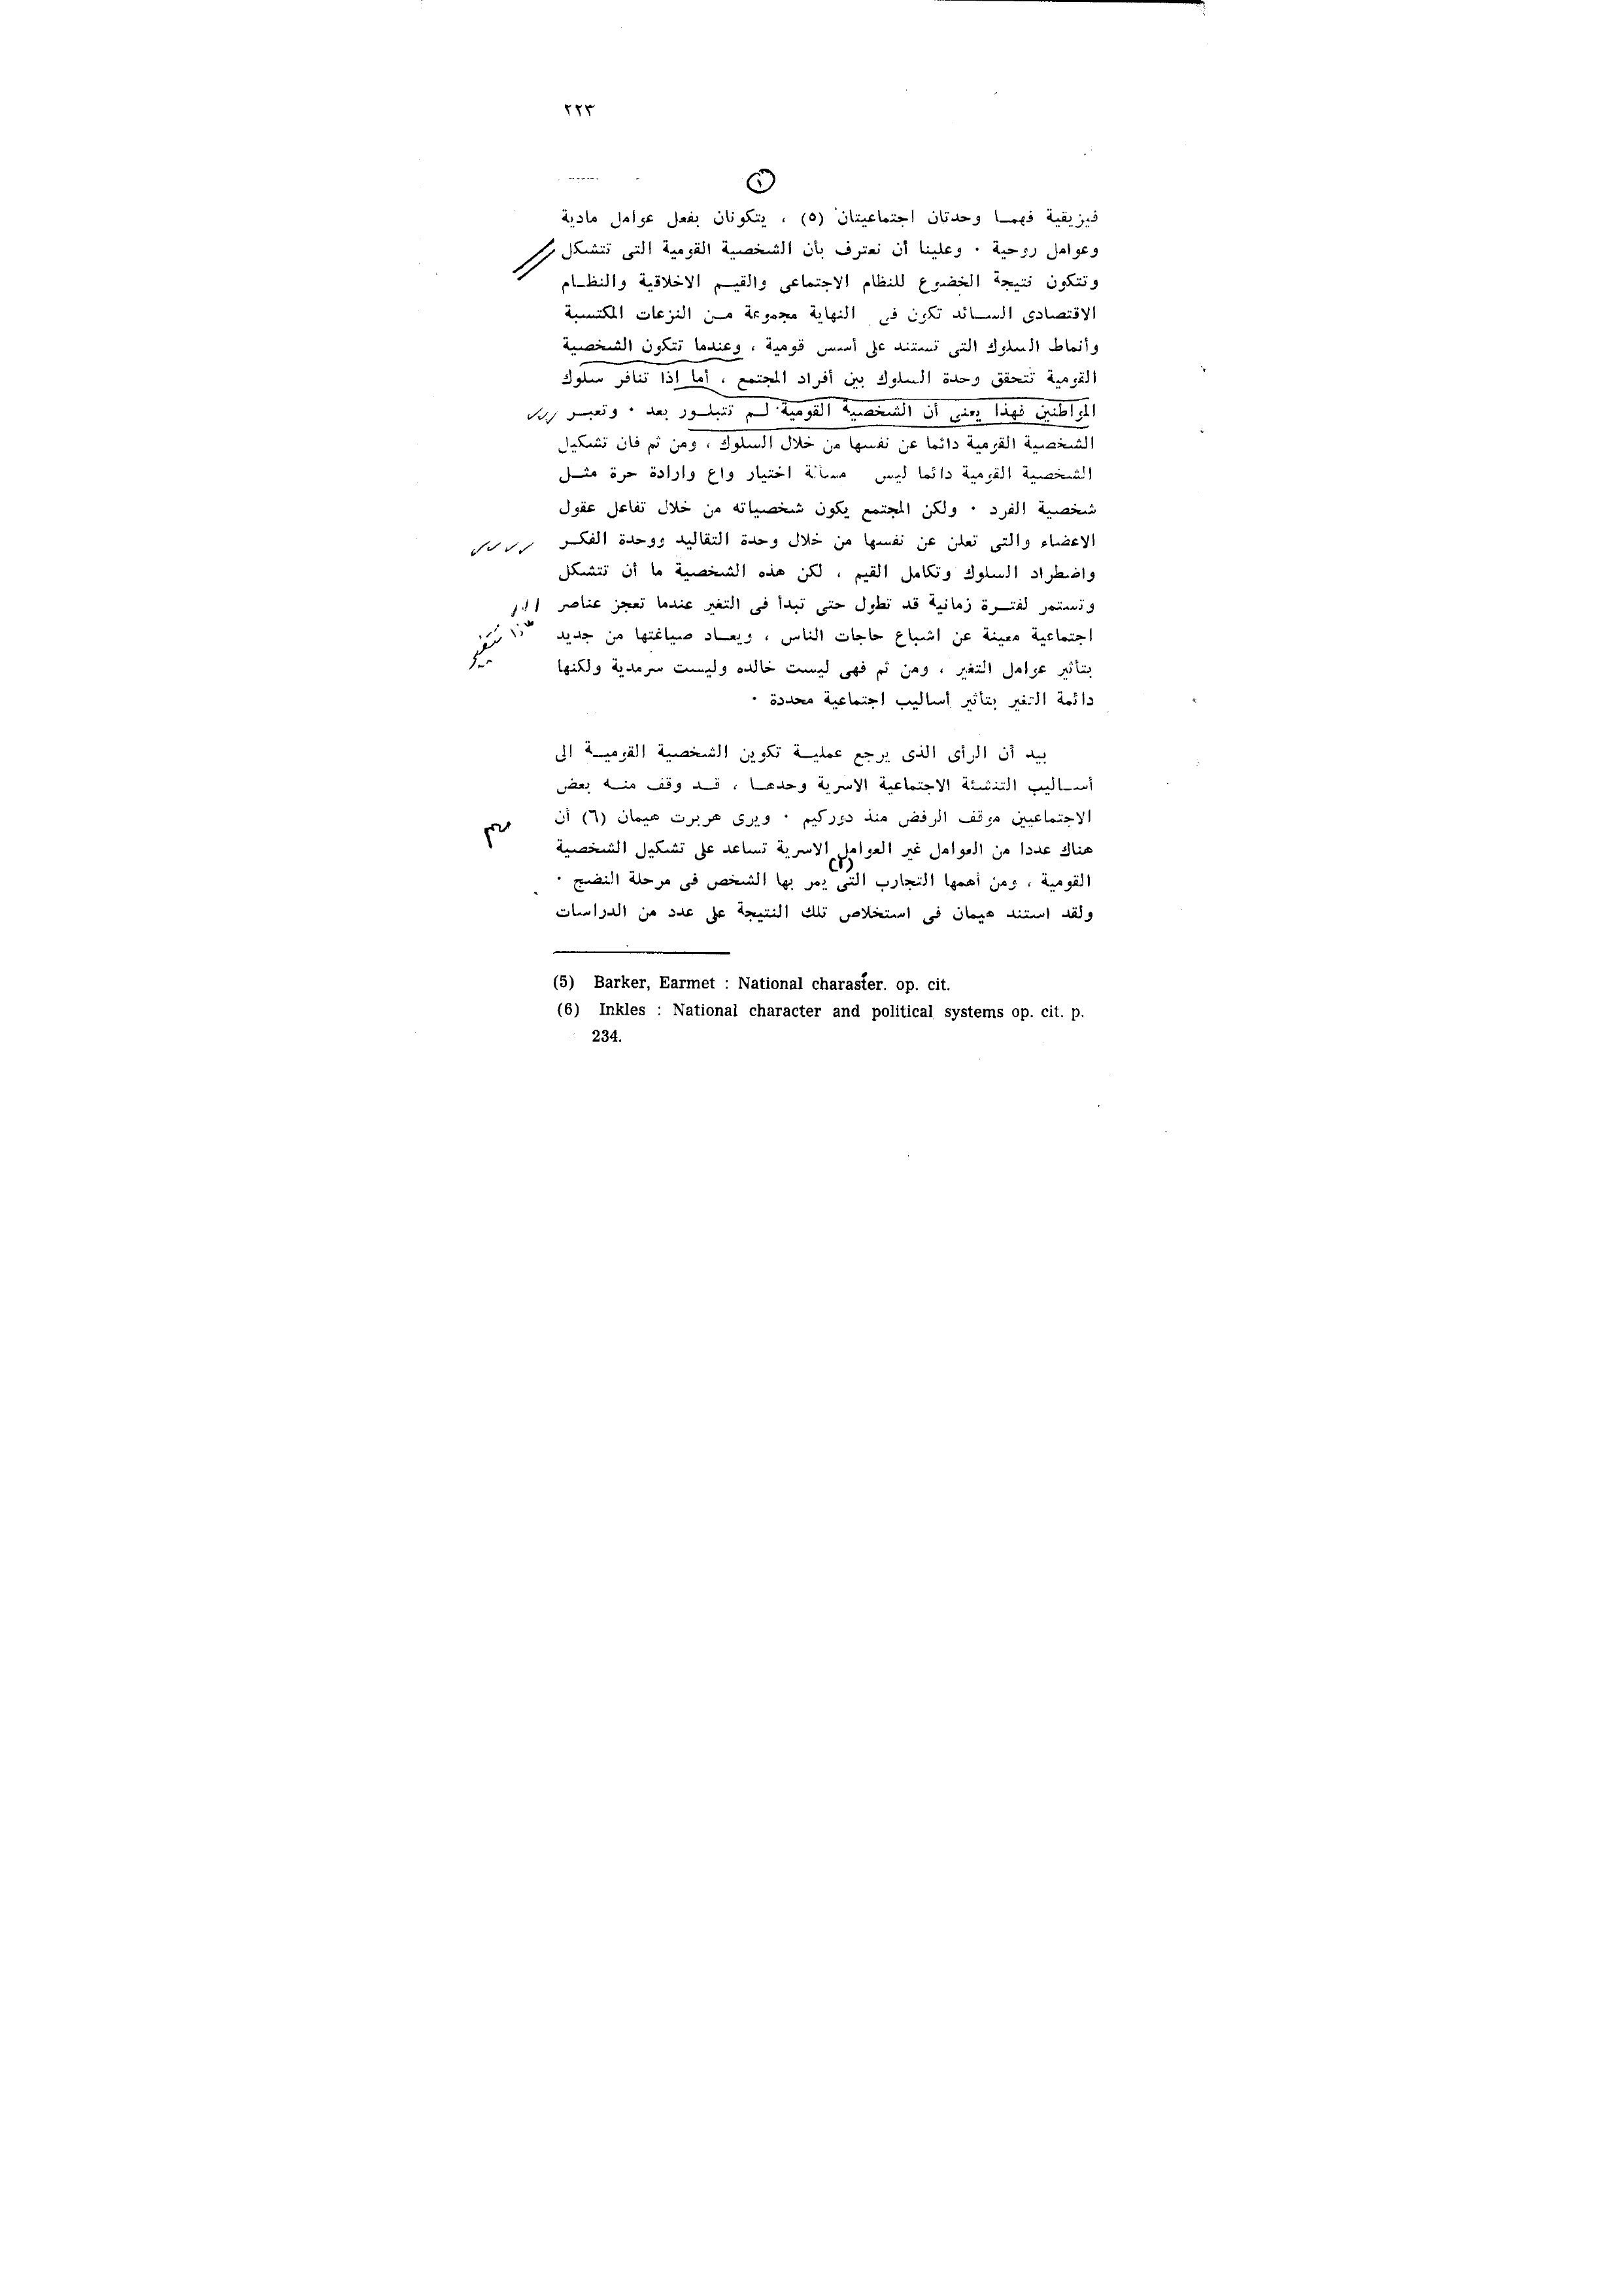 ٢٢٣
١
فيزيقية فهما وحدتان اجتماعيتان (٥) ، يتكونان بفعل عوامل مادية
وعوامل روحية ٠ وعلينا أن نعترف بأن الشخصية القومية التى تتشكل
وتتكون نتيجة الخضوع للنظام الاجتماعى والقيم الاخلاقية والنظام
الاقتصادى السائد تكون فى النهاية مجموعة من النزعات المكتسبة
وأنماط السلوك التى تستند على أسس قومية ، وعندما تتكون الشخصية
القومية تتحقق وحدة السلوك بين أفراد المجتمع ، أما إذا تنافر سلوك
المواطنين فهذا يعنى أن الشخصية القومية لم تتبلور بعد ٠ وتعبر
الشخصية القومية دائما عن نفسها من خلال السلوك ، ومن ثم فان تشكيل
الشخصية القومية دائما ليس مسألة اختيار واع وارادة حرة مثل
شخصية الفرد ٠ ولكن المجتمع يكون شخصياته من خلال تفاعل عقول
الاعضاء والتى تعلن عن نفسها من خلال وحدة التقاليد ووحدة الفكر
واضطراد السلوك وتكامل القيم ، لكن هذه الشخصية ما أن تتشكل
وتستمر لفترة زمانية قد تطول حتى تبدأ فى التغير عندما تعجز عناصر
اجتماعية معينة عن اشباع حاجات الناس ، ويعاد صياغتها من جديد
بتأثير عوامل التغير ، ومن ثم فهى ليست خالده وليست سرمدية ولكنها
دائمة التغير بتأثير أساليب اجتماعية محددة ٠
بيد أن الرأى الذى يرجع عملية تكوين الشخصية القومية الى
أساليب التنشئة الاجتماعية الاسرية وحدها ، قد وقف منه بعض
الاجتماعيين موقف الرفض منذ دوركيم ٠ ويرى هربرت هيمان (٦) أن
هناك عددا من العوامل غير العوامل الاسرية تساعد على تشكيل الشخصية
القومية ، ومن أهمها التجارب التى يمر بها الشخص فى مرحلة النضج ٠
ولقد استند هيمان فى استخلاص تلك النتيجة على عدد من الدراسات
(5) Barker, Earmet : National charaster. op. cit.
(6) Inkles : National character and political systems op. cit. p.
234.